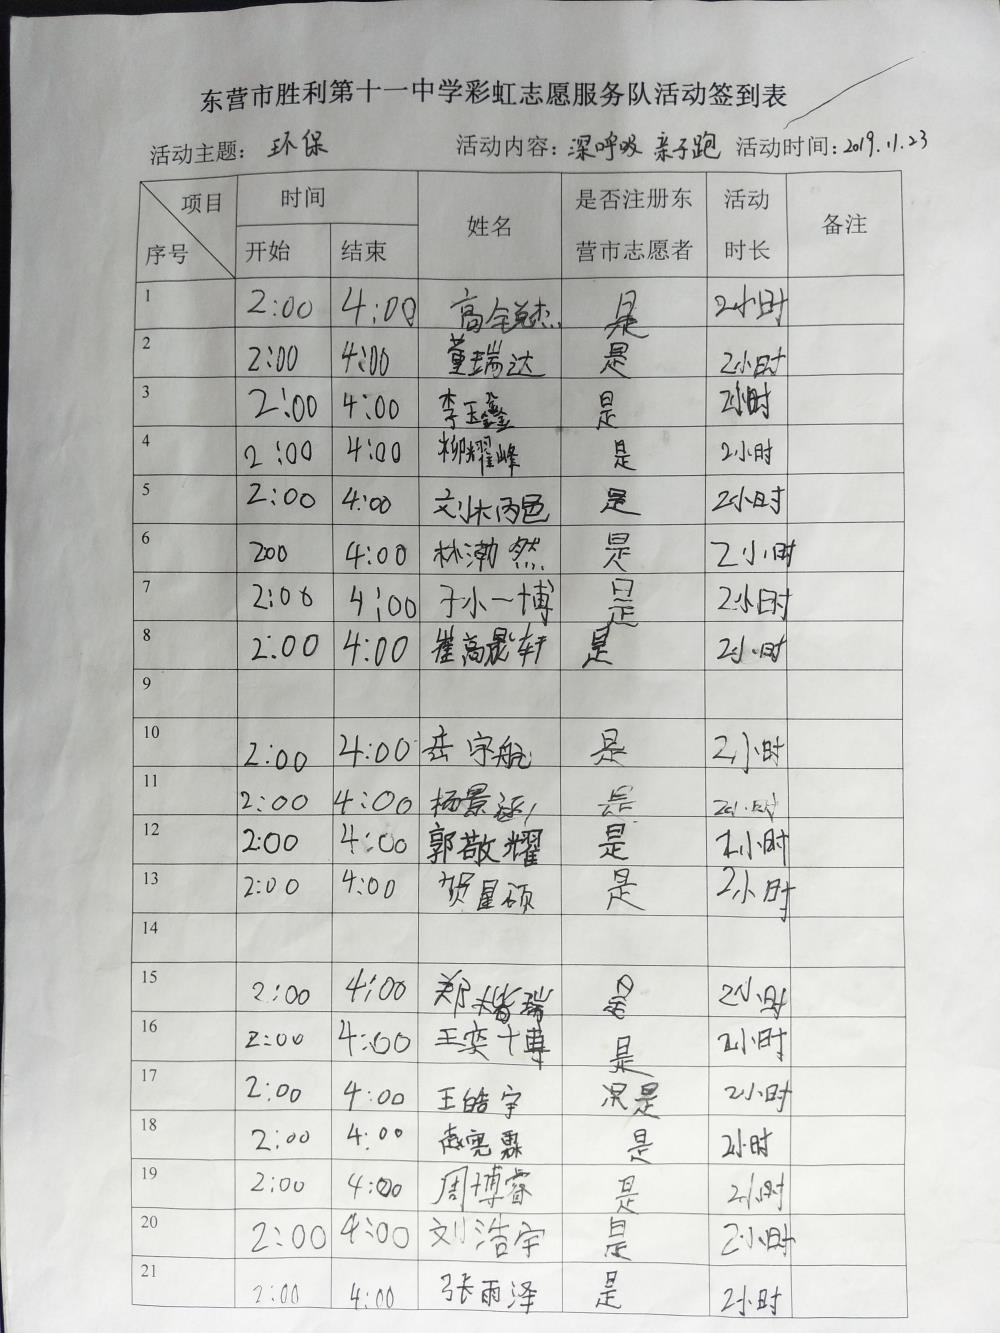 东营市胜利第十一中学彩虹志愿服务队活动签到表
活动主题：环保 活动内容：深呼吸 亲子跑 活动时间：2019.11.23
项目 时间 姓名 是否注册东营市志愿者 活动时长 备注
序号 开始 结束
1 2:00 4:00 是 2小时
2 2:00 4:00 董瑞达 是 2小时
3 2:00 4:00 李玉鑫 是 2小时
4 2:00 4:00 柳耀峰 是 2小时
5 2:00 4:00 是 2小时
6 200 4:00 林渤然 是 2小时
7 2:00 4:00 于小一博 是 2小时
8 2:00 4:00 崔高晟轩 是 2小时
9
10 2:00 4:00 岳宇航 是 2小时
11 2:00 4:00 杨景涵 是 2小时
12 2:00 4:00 郭敬耀 是 2小时
13 2:00 4:00 贺星硕 是 2小时
14
15 2:00 4:00 是 2小时
16 2:00 4:00 王奕博 是 2小时
17 2:00 4:00 王皓宇 是 2小时
18 2:00 4:00 是 2小时
19 2:00 4:00 周博睿 是 2小时
20 2:00 4:00 刘浩宇 是 2小时
21 2:00 4:00 张雨泽 是 2小时